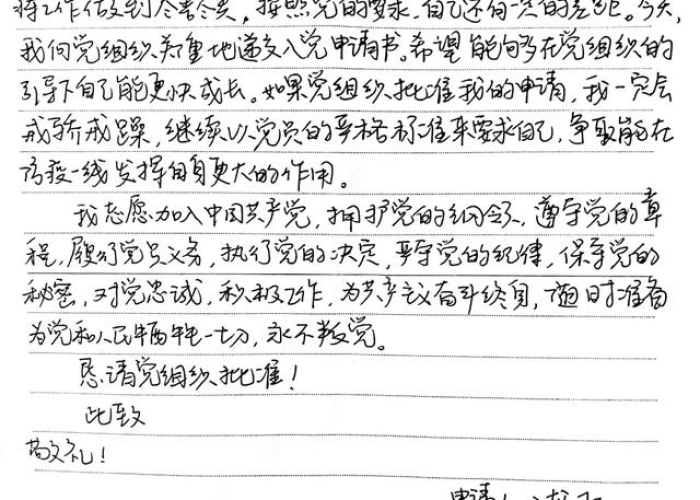 将工作做到尽善尽美，按照党的要求，自己还有一定的差距。今天，
我向党组织郑重地递交入党申请书。希望能够在党组织的
引导下自己能更快成长。如果党组织批准我的申请，我一定会
戒骄戒躁，继续以党员的严格标准来要求自己，争取能在
防疫一线发挥自身更大的作用。
我志愿加入中国共产党，拥护党的纲领，遵守党的章
程，履行党员义务，执行党的决定，严守党的纪律，保守党的
秘密，对党忠诚，积极工作，为共产主义奋斗终身，随时准备
为党和人民牺牲一切，永不叛党。
恳请党组织批准！
此致
敬礼！
申请人